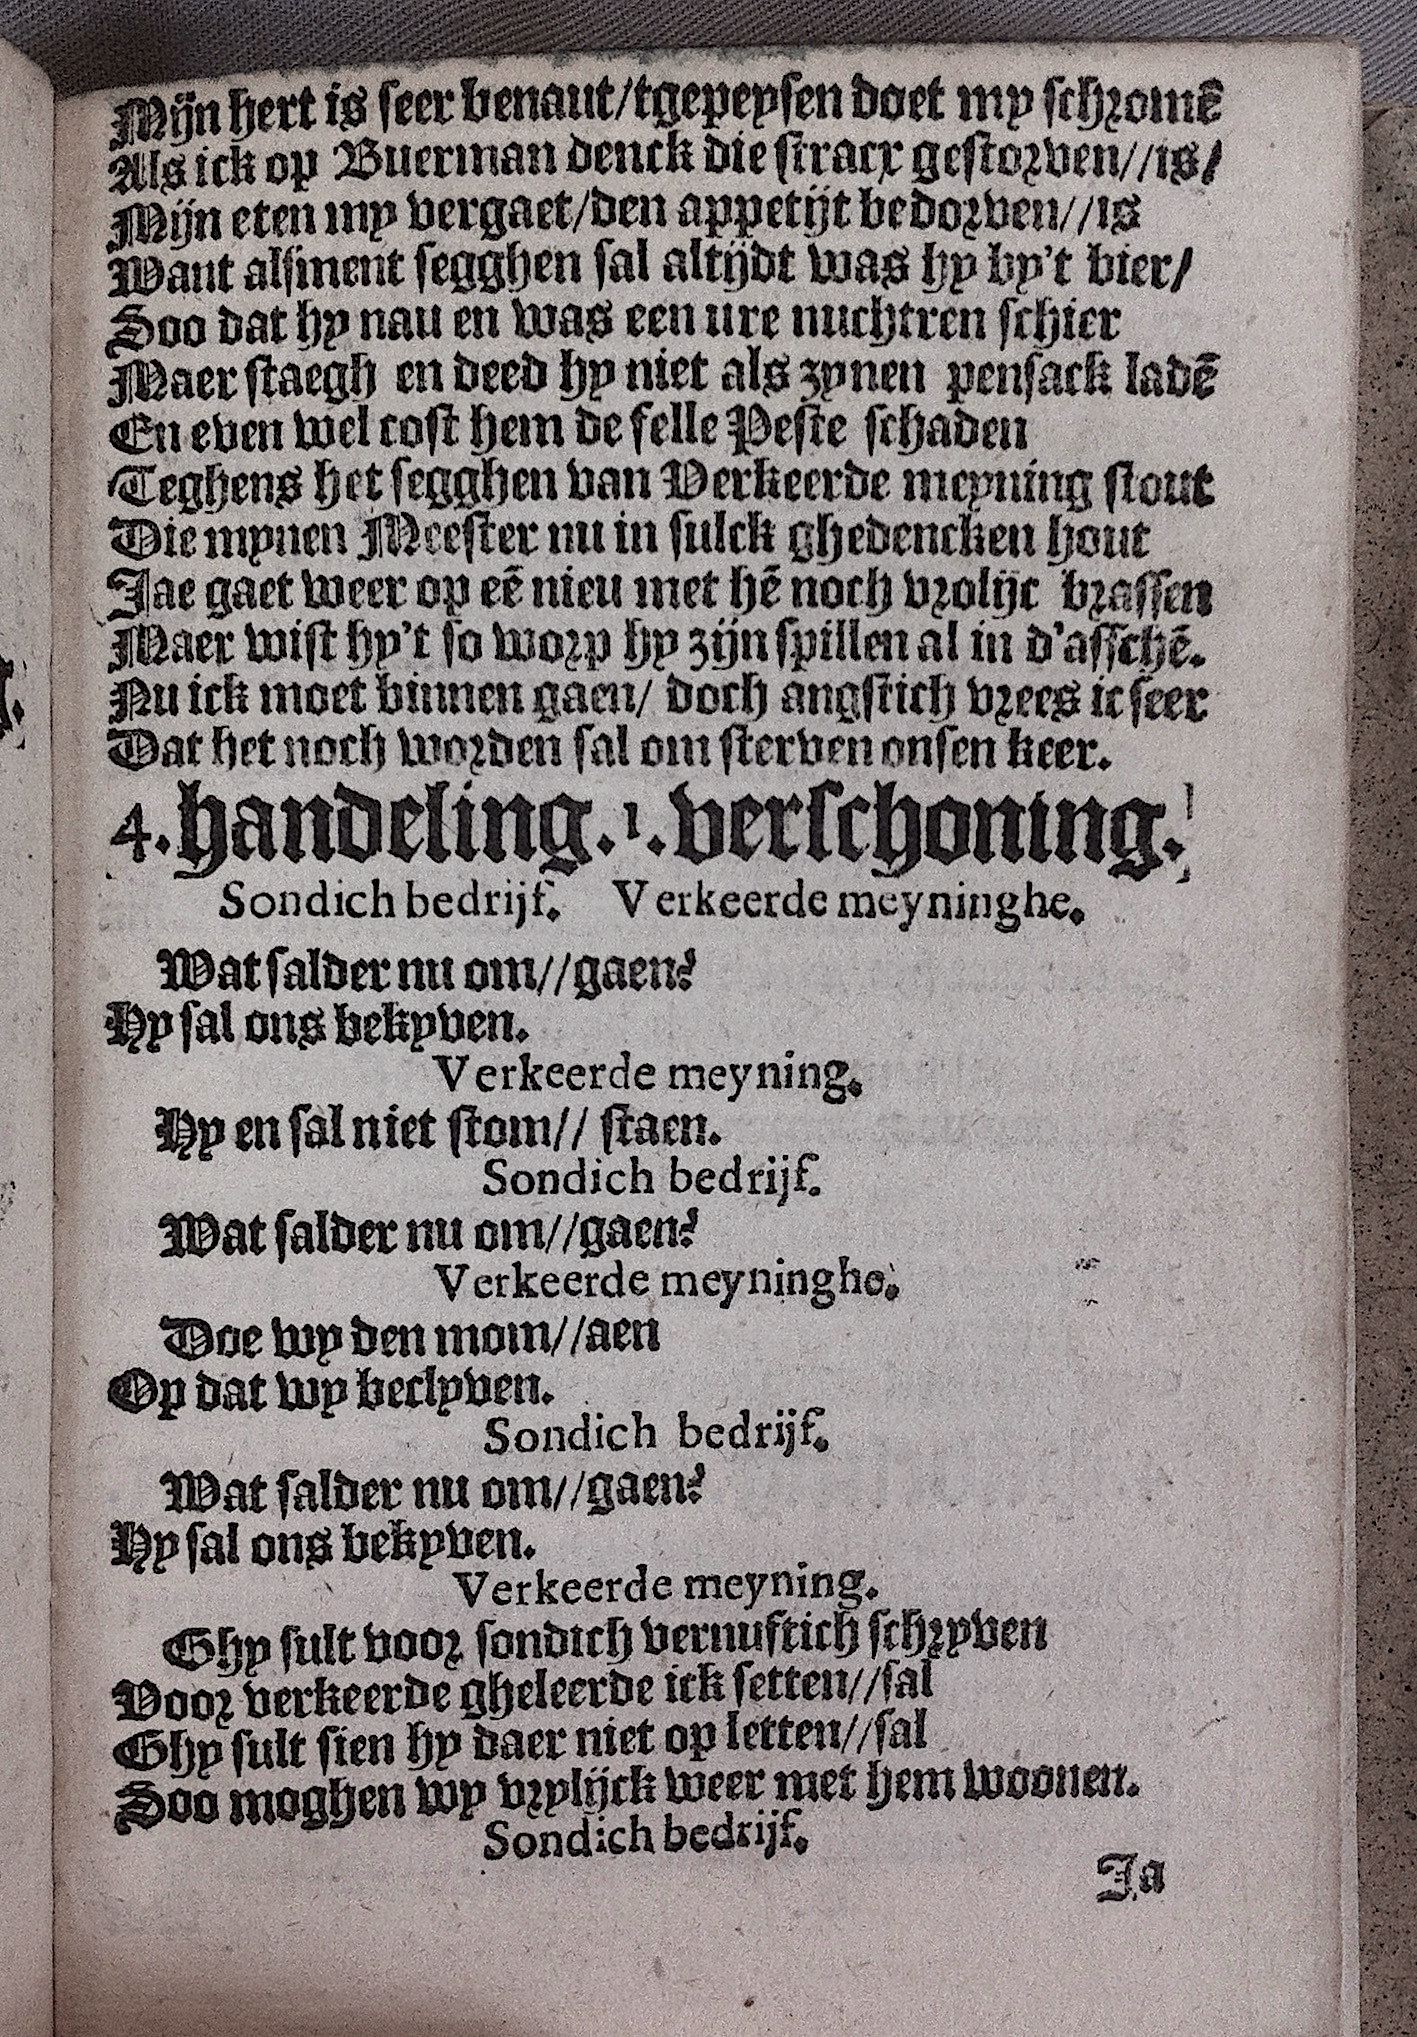 Mijn hert is seer benaut/tgepeysen doet my schromē
Als ick op Buerman denck die stracx gestorven//is/
Mijn eten my vergaet/den appetijt bedorven//is
Want alsment segghen sal altijdt was hy by't bier/
Soo dat hy nau en was een ure nuchtren schier
Maer staegh en deed hy niet als zynen pensack ladē
En even wel cost hem de felle Peste schaden
Teghens het segghen van Verkeerde meyning stout
Die mynen Meester nu in sulck ghedencken hout
Jae gaet weer op eē nieu met hē noch vrolijc brassen
Maer wist hy't so worp hy zijn spillen al in d'asschē.
Nu ick moet binnen gaen/ doch angstich vrees ic seer
Dat het noch worden sal om sterven onsen keer.
4. handeling. 1. verschoning.
Sondich bedrijf. Verkeerde meyninghe.
Wat salder nu om//gaen?
Hy sal ons bekyven.
Verkeerde meyning.
Hy en sal niet stom// staen.
Sondich bedrijf.
Wat salder nu om//gaen?
Verkeerde meyninghe.
Doe wy den mom//aen
Op dat wy beclyven.
Sondich bedrijf.
Wat salder nu om//gaen?
Hy sal ons bekyven.
Verkeerde meyning.
Ghy sult voor sondich vernuftich schryven
Voor verkeerde gheleerde ick setten//sal
Ghy sult sien hy daer niet op letten//sal
Soo moghen wy vrylijck weer met hem woonen.
Sondich bedrijf.
Ja